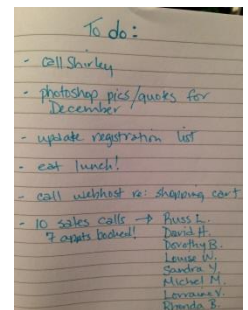 To do:
- call Shirley
- photoshop pics/quotes for
December
- update registration list
- eat lunch!
- call webhost re: shopping cart
- 10 sales calls → Russ L.
7 appts booked! David H.
Dorothy B.
Louise W.
Sandra Y.
Michel M.
Lorraine V.
Rhonda B.